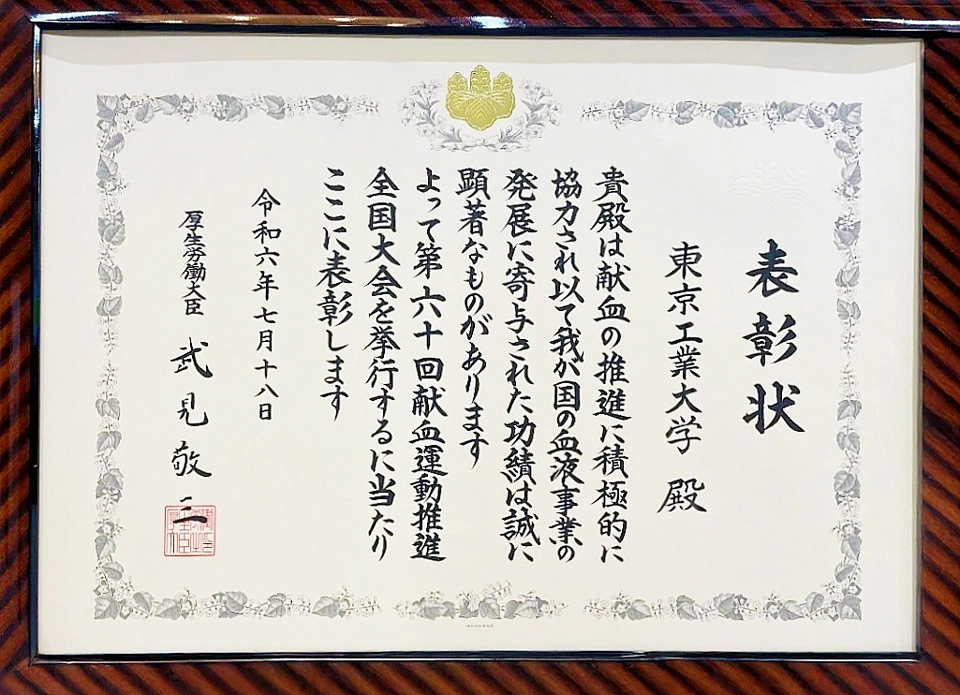 表彰状
東京工業大学 殿
貴殿は献血の推進に積極的に
協力され以て我が国の血液事業の
発展に寄与された功績は誠に
顕著なものがあります
よって第六十回献血運動推進
全国大会を挙行するに当たり
ここに表彰します
令和六年七月十八日
厚生労働大臣 武見敬三